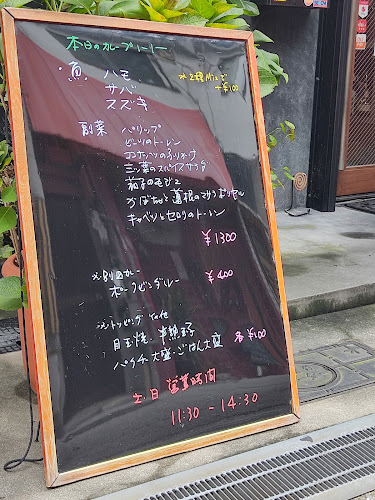 本日のカレープレート
・魚 ハモ
サバ
スズキ
※2種Mixで
+¥100
副菜 パリップ
ビーツのトーレン
ココナッツのふりかけ
三ツ葉のスパイスサラダ
茄子のモージュ
かぼちゃと蓮根のマサラポリヤル
キャベツとセロリのトーレン
¥1300
※別皿カレー
ポークビンダルー ¥400
※トッピング その他
目玉焼・半熟玉子
パクチー大盛・ごはん大盛 各¥100
土・日 営業時間
11:30 - 14:30